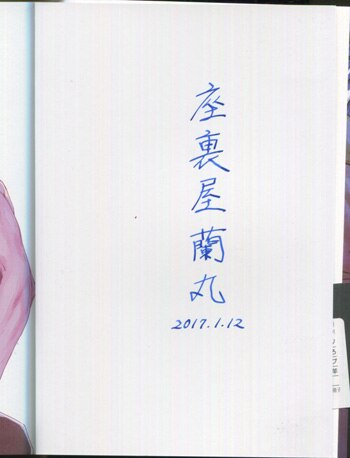 座裏屋蘭丸
2017.1.12